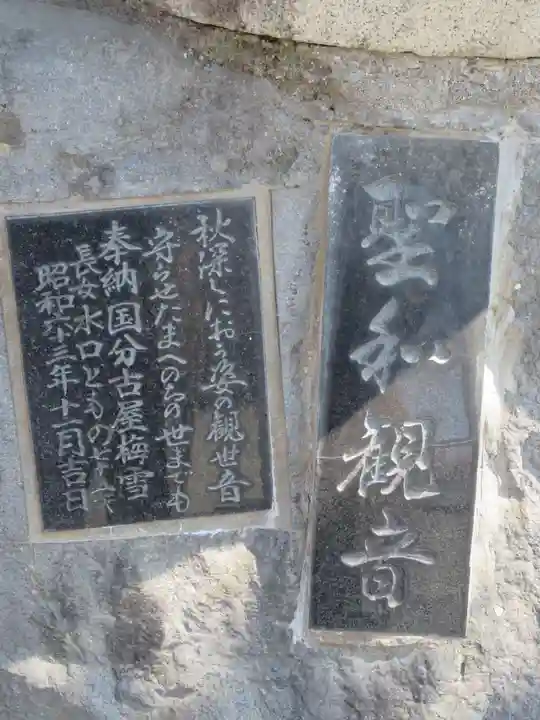 聖和観音
秋深しにおう姿の観世音
守らせたまへのちの世までも
奉納国分古屋梅雪
長女水口とものよ
昭和六十三年十一月吉日